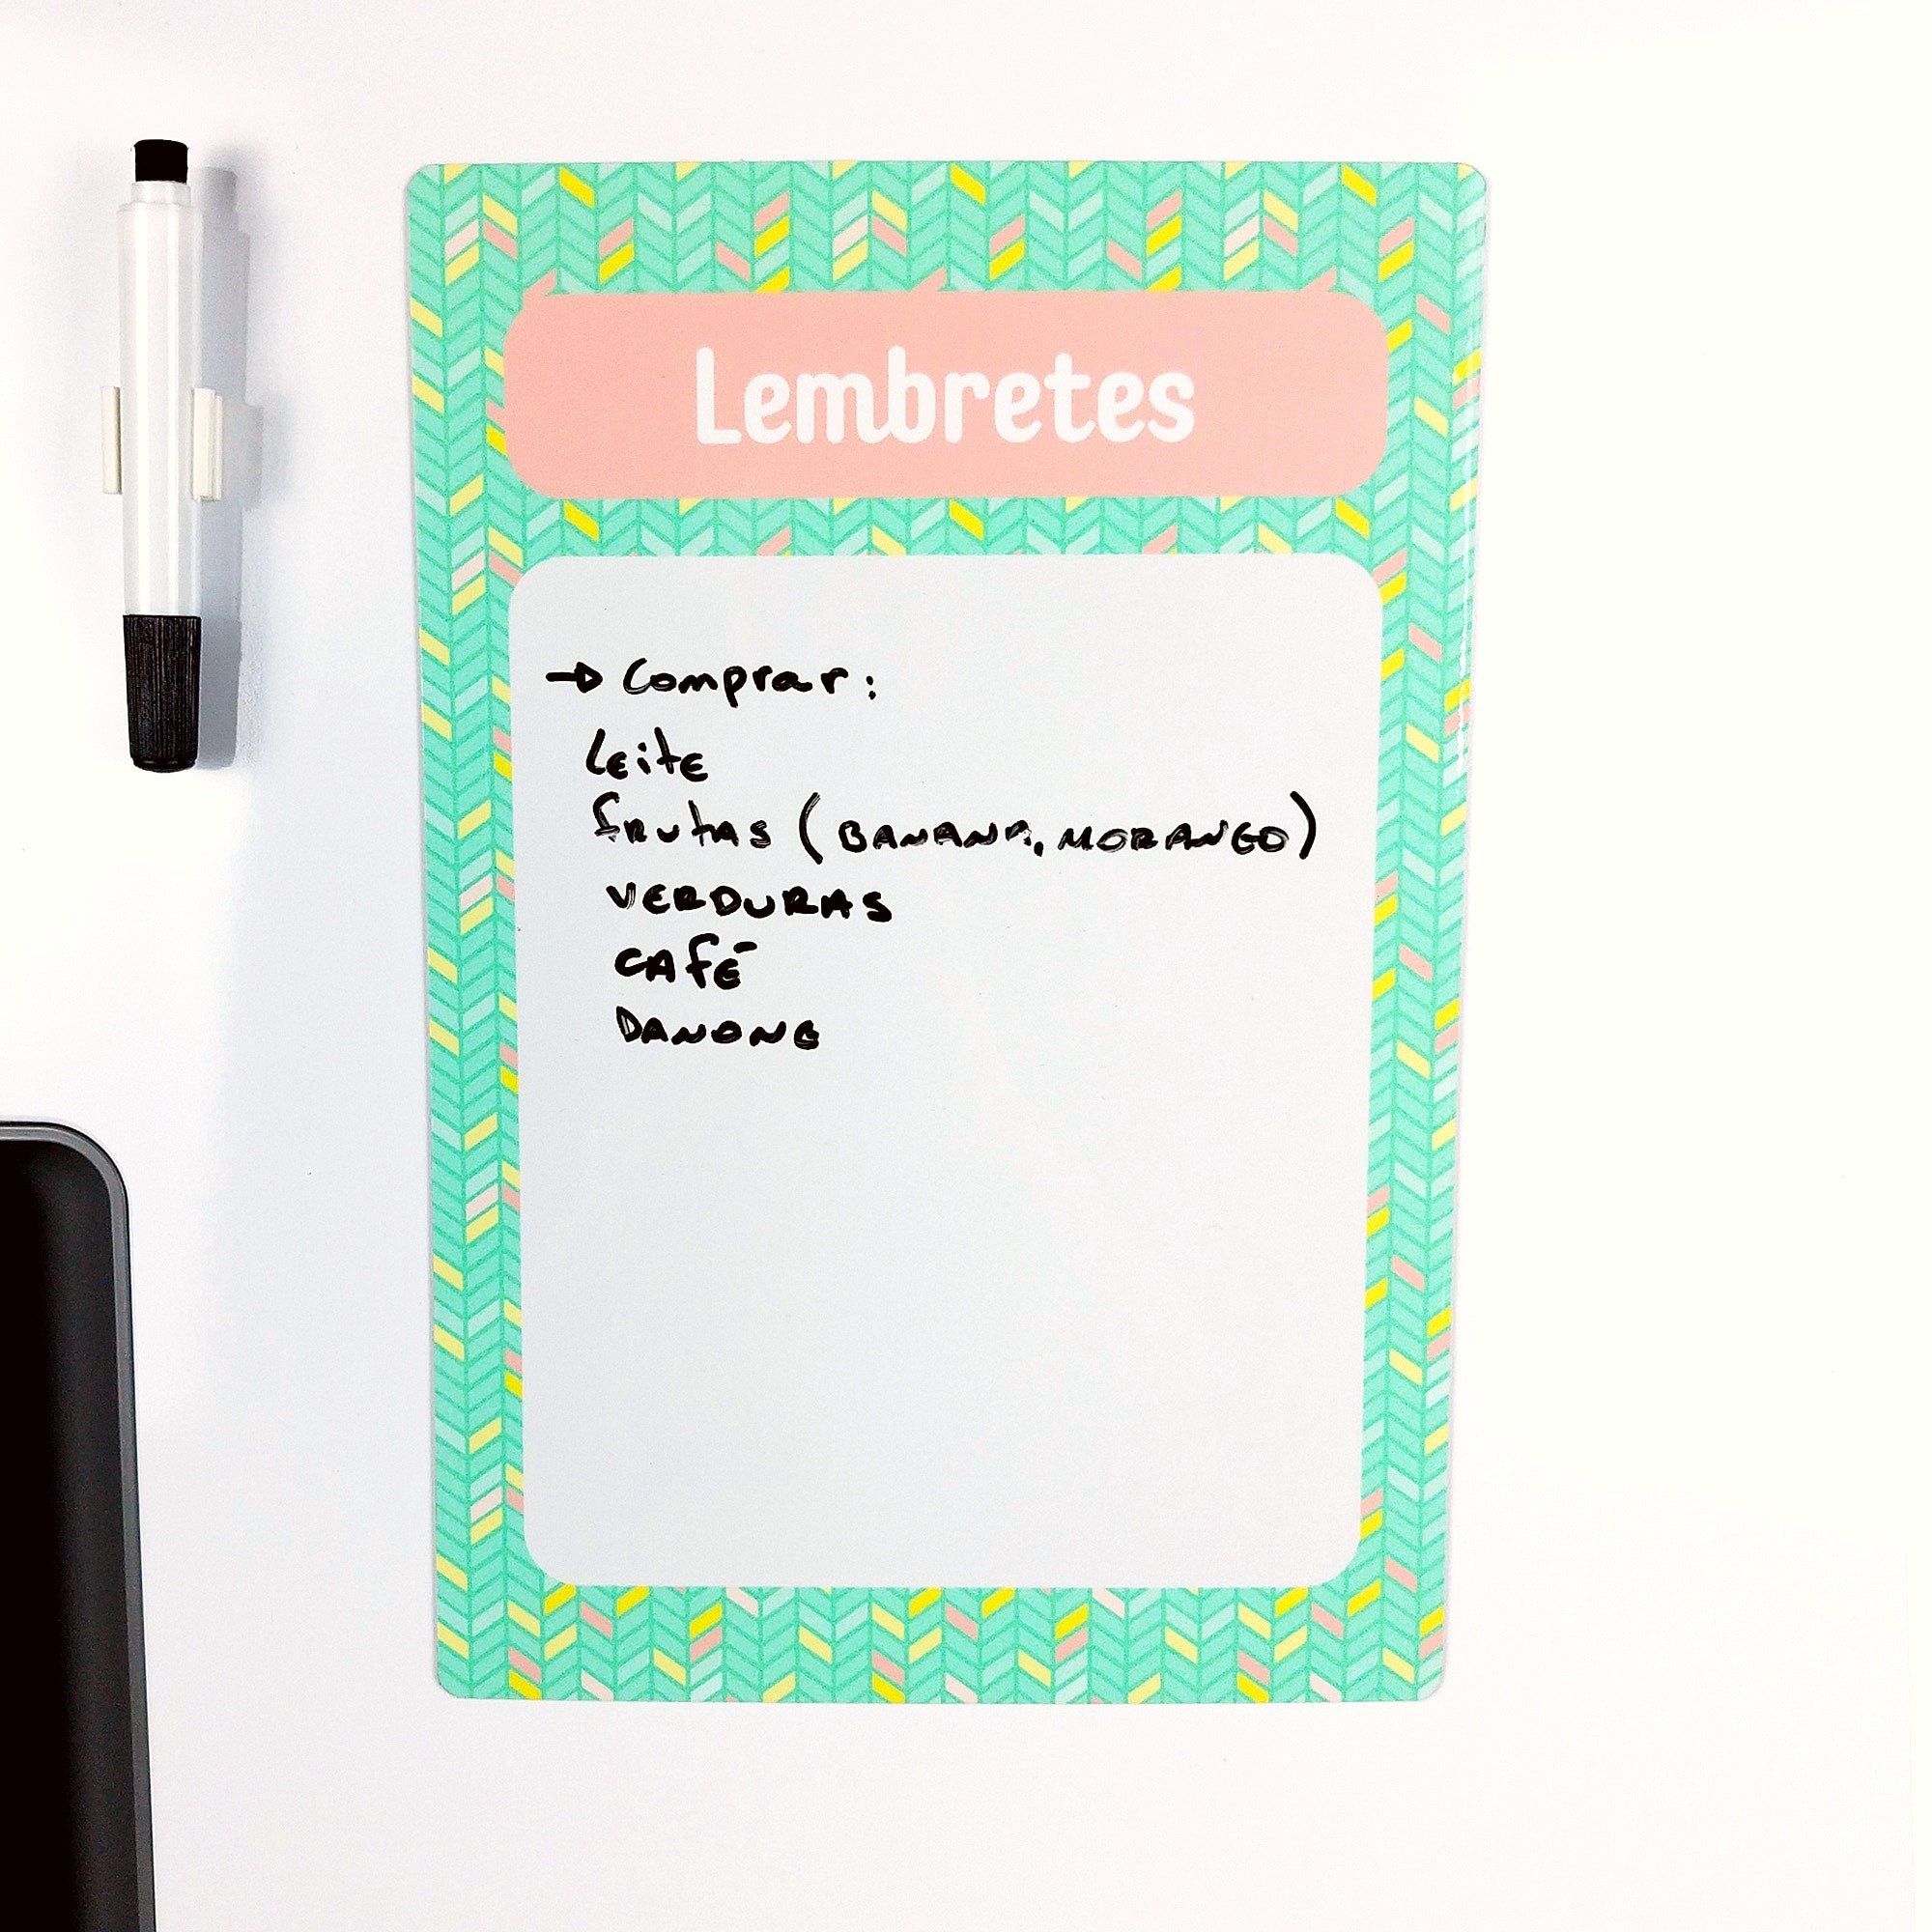 Lembretes
→ Comprar:
Leite
frutas (BANANA, MORANGO)
VERDURAS
CAFÉ
DANONE